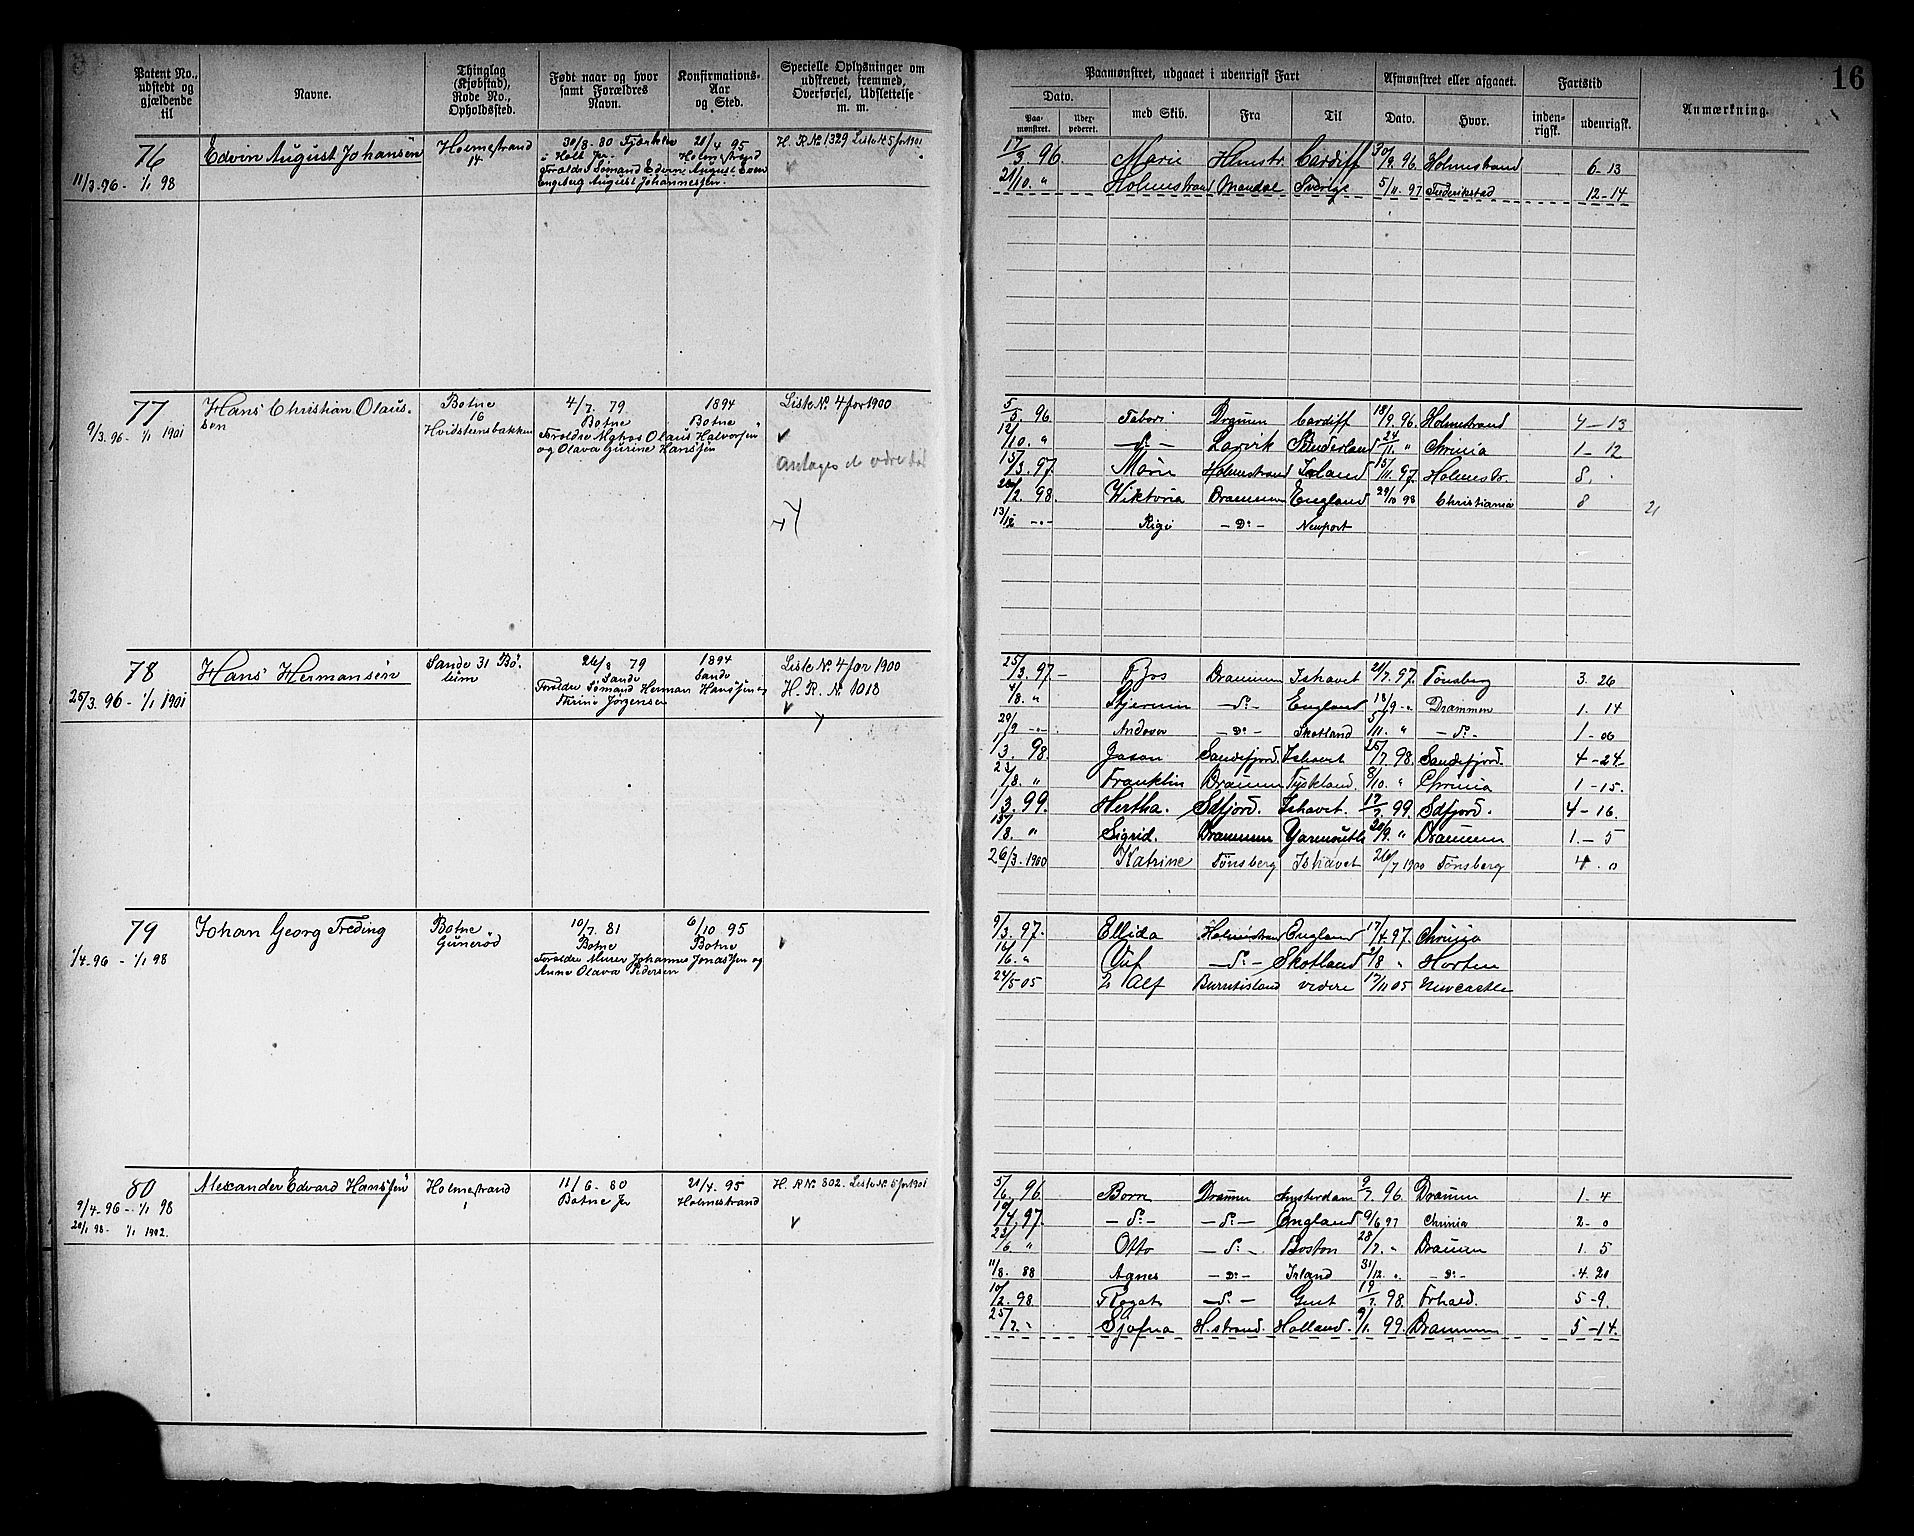 Patent No., udstedt og gjældende til
Navne.
Thinglag (Kjøbstad), Rode No., Opholdssted.
Født naar og hvor samt Forældres Navn.
Konfirmations- Aar og Sted.
Specielle Oplysninger om udskrevet, fremmed, Overførsel, Udslettelse m. m.
Paamønstret, udgaaet i udenrigsk Fart
Afmønstret eller afgaaet.
Fartstid
Anmærkning.
16
Dato.
Paa- mønstret.
med Skib.
Fra
Til
Dato.
Hvor.
inden- rigsk.
udenrigsk.
76
11/3.96 - 1/1 98
Edvin August Johansen
Holmestrand
14
30/8. 80
Holt
21/4 95
Holmestrand
H. R. No 1329 Liste No 5 for 1901
17/3. 96 Marie Hmstr. Cardiff 30/9. 96 Holmstrand 6-13
21/10. " Holmstrand Mandal Sverige 5/11. 97 Frederikstad 12-14
77
9/3.96 - 1/1 1901
Hans Christian Olaus-
sen
Botne
16
Hvidsteensbakken
4/7. 79
Botne
1894
Botne
Forældre Olaus Halvorsen
og Olava Gurine Hanssen
Liste No 4 for 1900
5/3. 96 Tabor Dramen Cardiff 18/9. 96 Holmestrand
12/10. " - Do - Larvik Sunderland 24/11. " Chrinia 1-12
15/3. 97. Marie Holmestrand Irland 15/11. 97. Holmestr. 8.
20/2. 98 Wiktoria Drammen England 29/10 98 Christiania 8
21
13/12 -"- Rigi - Do - Newport
78
25/3. 96 - 1/1 1901
Hans Hermansen
Sande 31
26/8 79
Sande
1894
Sande
Forældre Sømand Herman Hanssen og
Thrine Jørgensen
Liste No 4 for 1900
H. R. No 1018
25/3. 97. Drammen Ishavet 21/7. 97. Tønsberg 3. 26
4/8. " Stjernen - Do - England 18/9 -" Drammen 1. 14
29/9 -"- - Do - Skotland 5/11. " - Do - 1-06
1/3. 98 Jason Sandefjord. Ishavet 25/7. 98. Sandefjord. 4-24
23/8. " Franklin Drammen Tyskland. 8/10. " Chrinia 1-15.
1/3. 99. Hertha. Sdfjord. Ishavet. 17/7. 99. Sdfjord. 4-16.
15/8. " Sigrid. Drammen Yarmouth 20/9. " Drammen 1.-5
26/3. 1900 Katrine Tønsberg Ishavet 26/7 1900 Tønsberg 4. 0
79
1/4.96 - 1/1 98
Johan Georg Freding
Botne
Gunerød
10/7. 81
Botne
6/10 95
Botne
Forældre Murer Johannes Jonassen og
Anne Olava Pedersen
9/3. 97. Ellida Holmestrand England 17/4 97. Chrinia
16/6. " - Do - Skotland 3/8 " Horten
24/5 05 Alf Burntisland videre 17/11 05 Newcastle
80
9/4.96 - 1/1 98
20/1 98 - 1/1 1902.
Alexander Edvard Hanssen
Holmestrand
1
11/6 - 80
Botne
21/4. 95
Holmestrand
H. R. No 802. Liste No 5 for 1901
5/6. 96 Dramen Amsterdam 9/7. 96. Dramen 1. 4
10/4. 97. - Do - - Do - England 9/6 97 Chrinia 2-0
23/6 " Otto - Do - Boston 28/7. " Dramen 1. 5
11/8. 88 Agnes - Do - Irland 31/12. " - Do - 4. 20
10/2. 98 - Do - Gent 19/7. 98. Frhald. 5-9.
25/7. " Sjofna H.strand. Holland. 9/1. 99. Drammen 5-14.